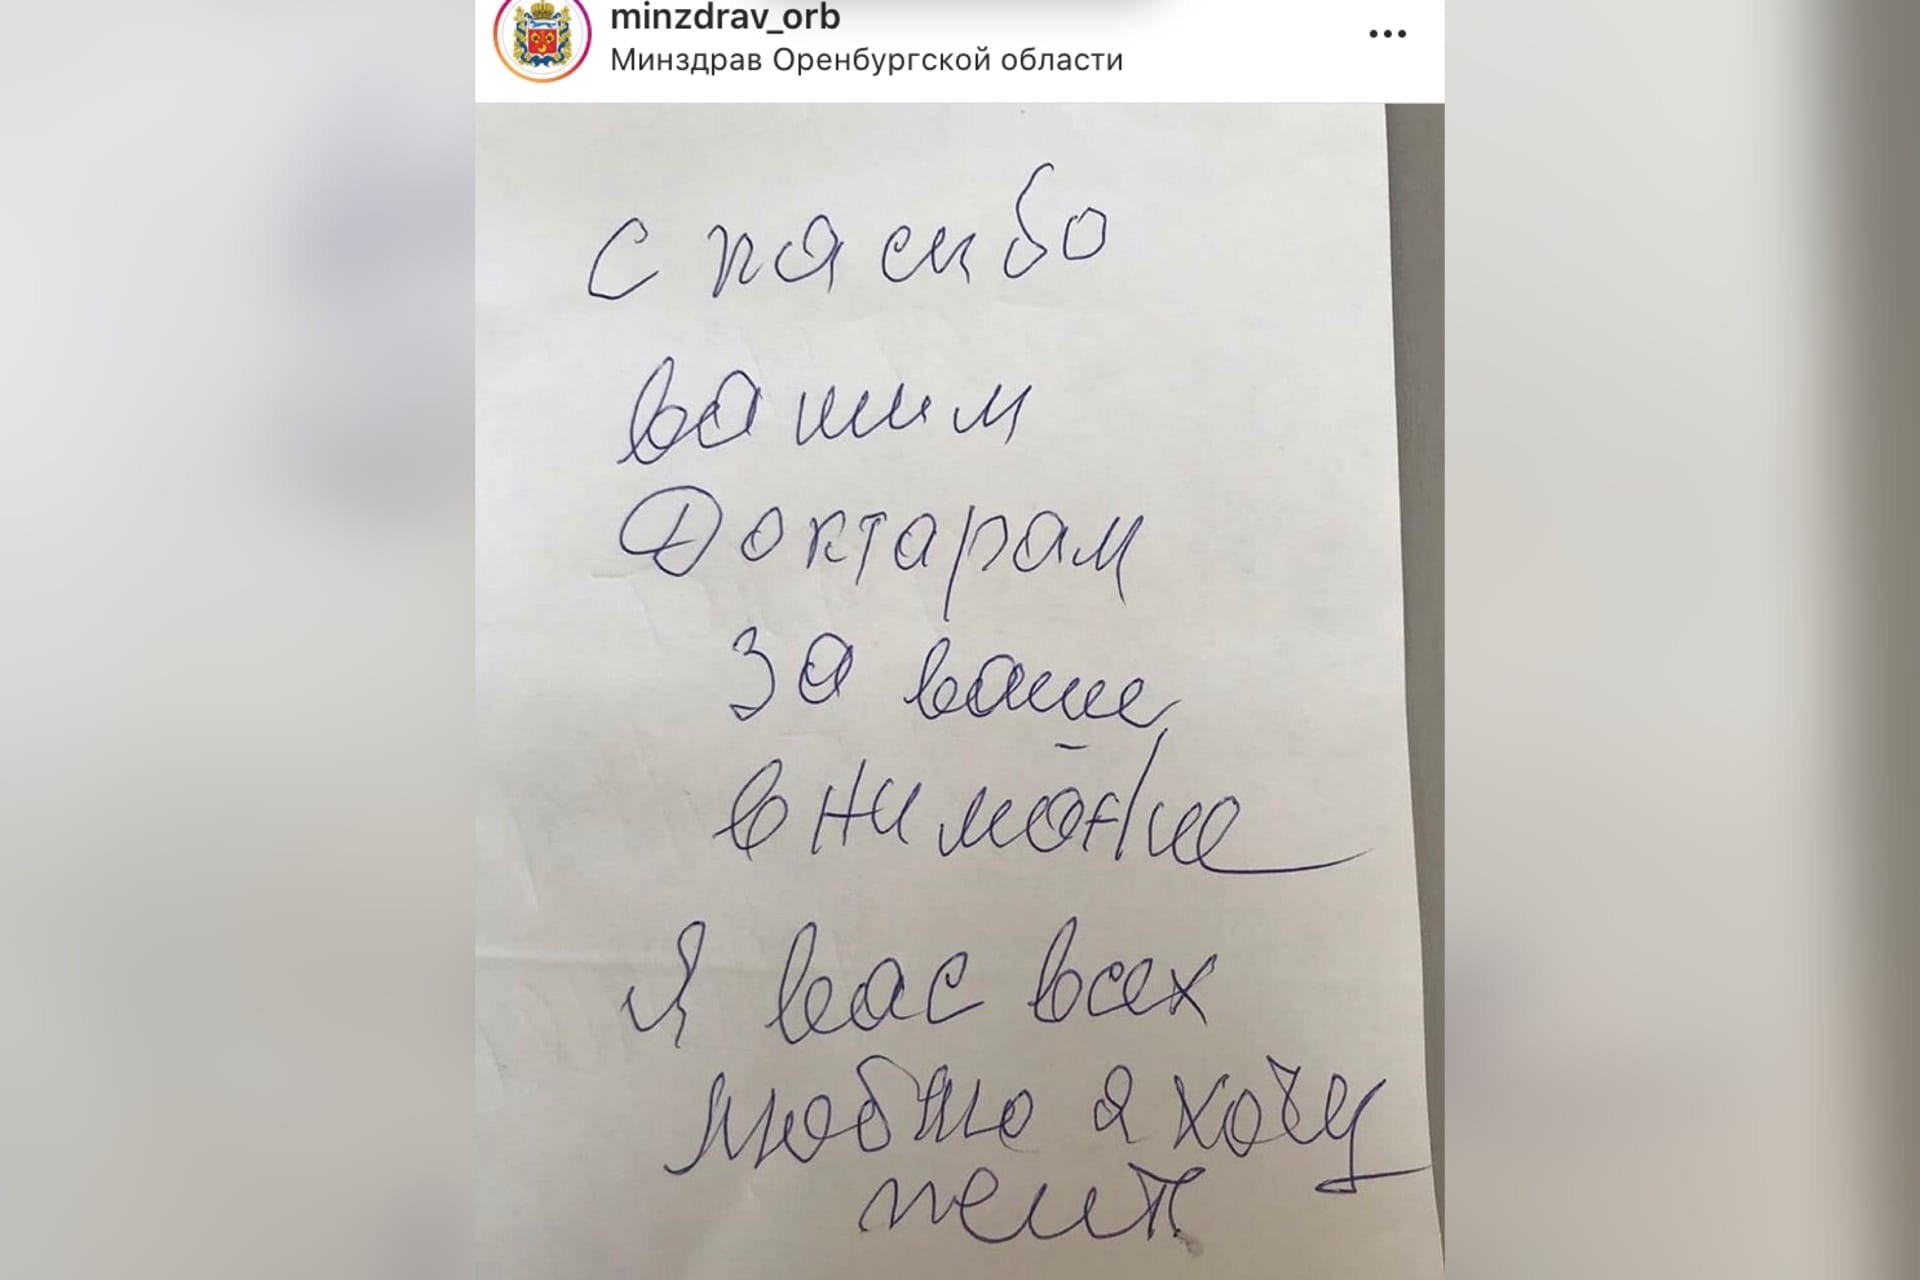 minzdrav_orb
Минздрав Оренбургской области
Спасибо
вашим
Доктарам
за ваше
внимание
Я вас всех
люблю я хочу